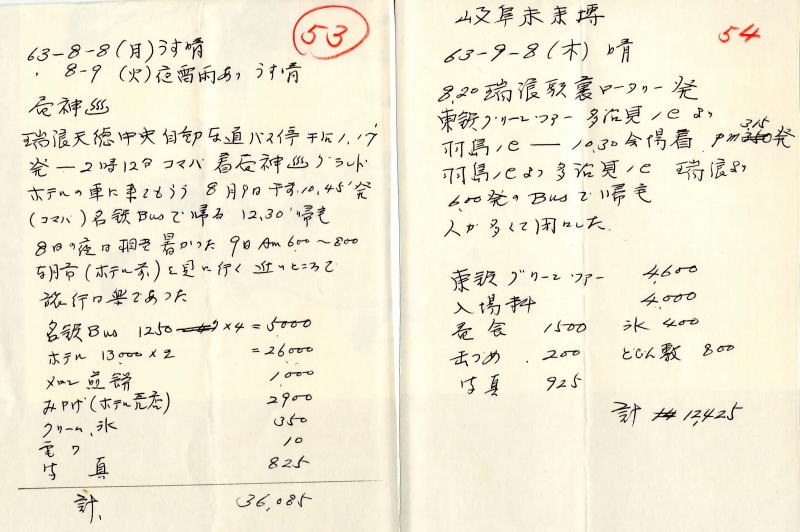 53
63-8-8(月)うす晴
8-9(火)夜雷雨あり うす晴
昼神
瑞浪天徳中央自動車道バス停 1,17
発ー2時12分コマバ着昼神 グランド
ホテルの車に来てもらう 8月9日 10,45'発
(コマバ)名鉄Busで帰る 12,30'帰宅
8日の夜は 暑かった 9日Am 6.00~8.00
朝市(ホテル前)を見に行く 近いところで
旅行は楽であった
名鉄Bus 1250 ×4=5000
ホテル 13000×2 =26000
煎餅 1,000
みやげ(ホテル売店) 2900
クリーム、氷 350
電ワ 10
写真 825
計、 36,085
54
岐阜未来博
63-9-8(木) 晴
8,20 瑞浪駅裏ロータリー発
東鉄グリーンツアー 多治見ICより
羽島IC ー 10,30会場着 pm 3,15
羽島ICより多治見IC 瑞浪より
6,00発のBusで帰宅
人が多くて閉口した.
東鉄グリーンツアー 4,600
入場料 4,000
昼食 1500 氷 400
缶つめ 200 800
写真 925
計 12,425